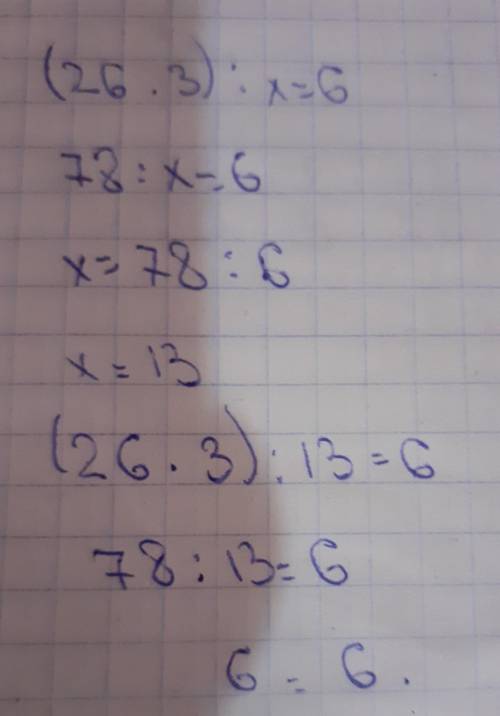 (26 . 3) : x = 6
78 : x = 6
x = 78 : 6
x = 13
(26 . 3) : 13 = 6
78 : 13 = 6
6 = 6 .